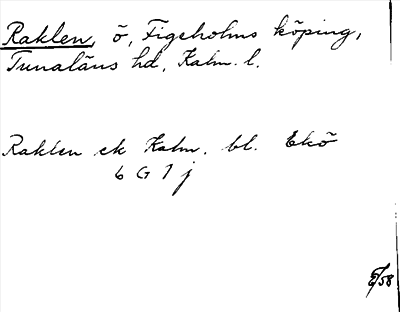 Raklen, ö, Figeholms köping,
Tunaläns hd, Kalm. l.
Raklen ek Kalm. bl. Ekö
6 G 7 j
E/58